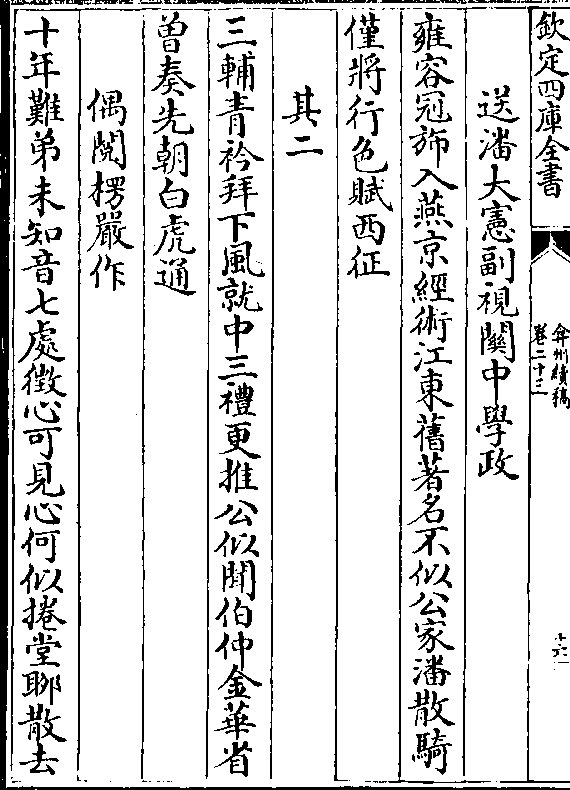 欽定四庫全書
弇州續稿
卷二十三
十六
送潘大憲副視關中學政
雍容冠斾入燕京經術江東舊著名不似公家潘散騎
僅將行色賦西征
其二
三輔青衿拜下風就中三禮更推公似聞伯仲金華省
曽奏先朝白虎通
偶閱楞嚴作
十年難弟未知音七處徴心可見心何似捲堂聊散去